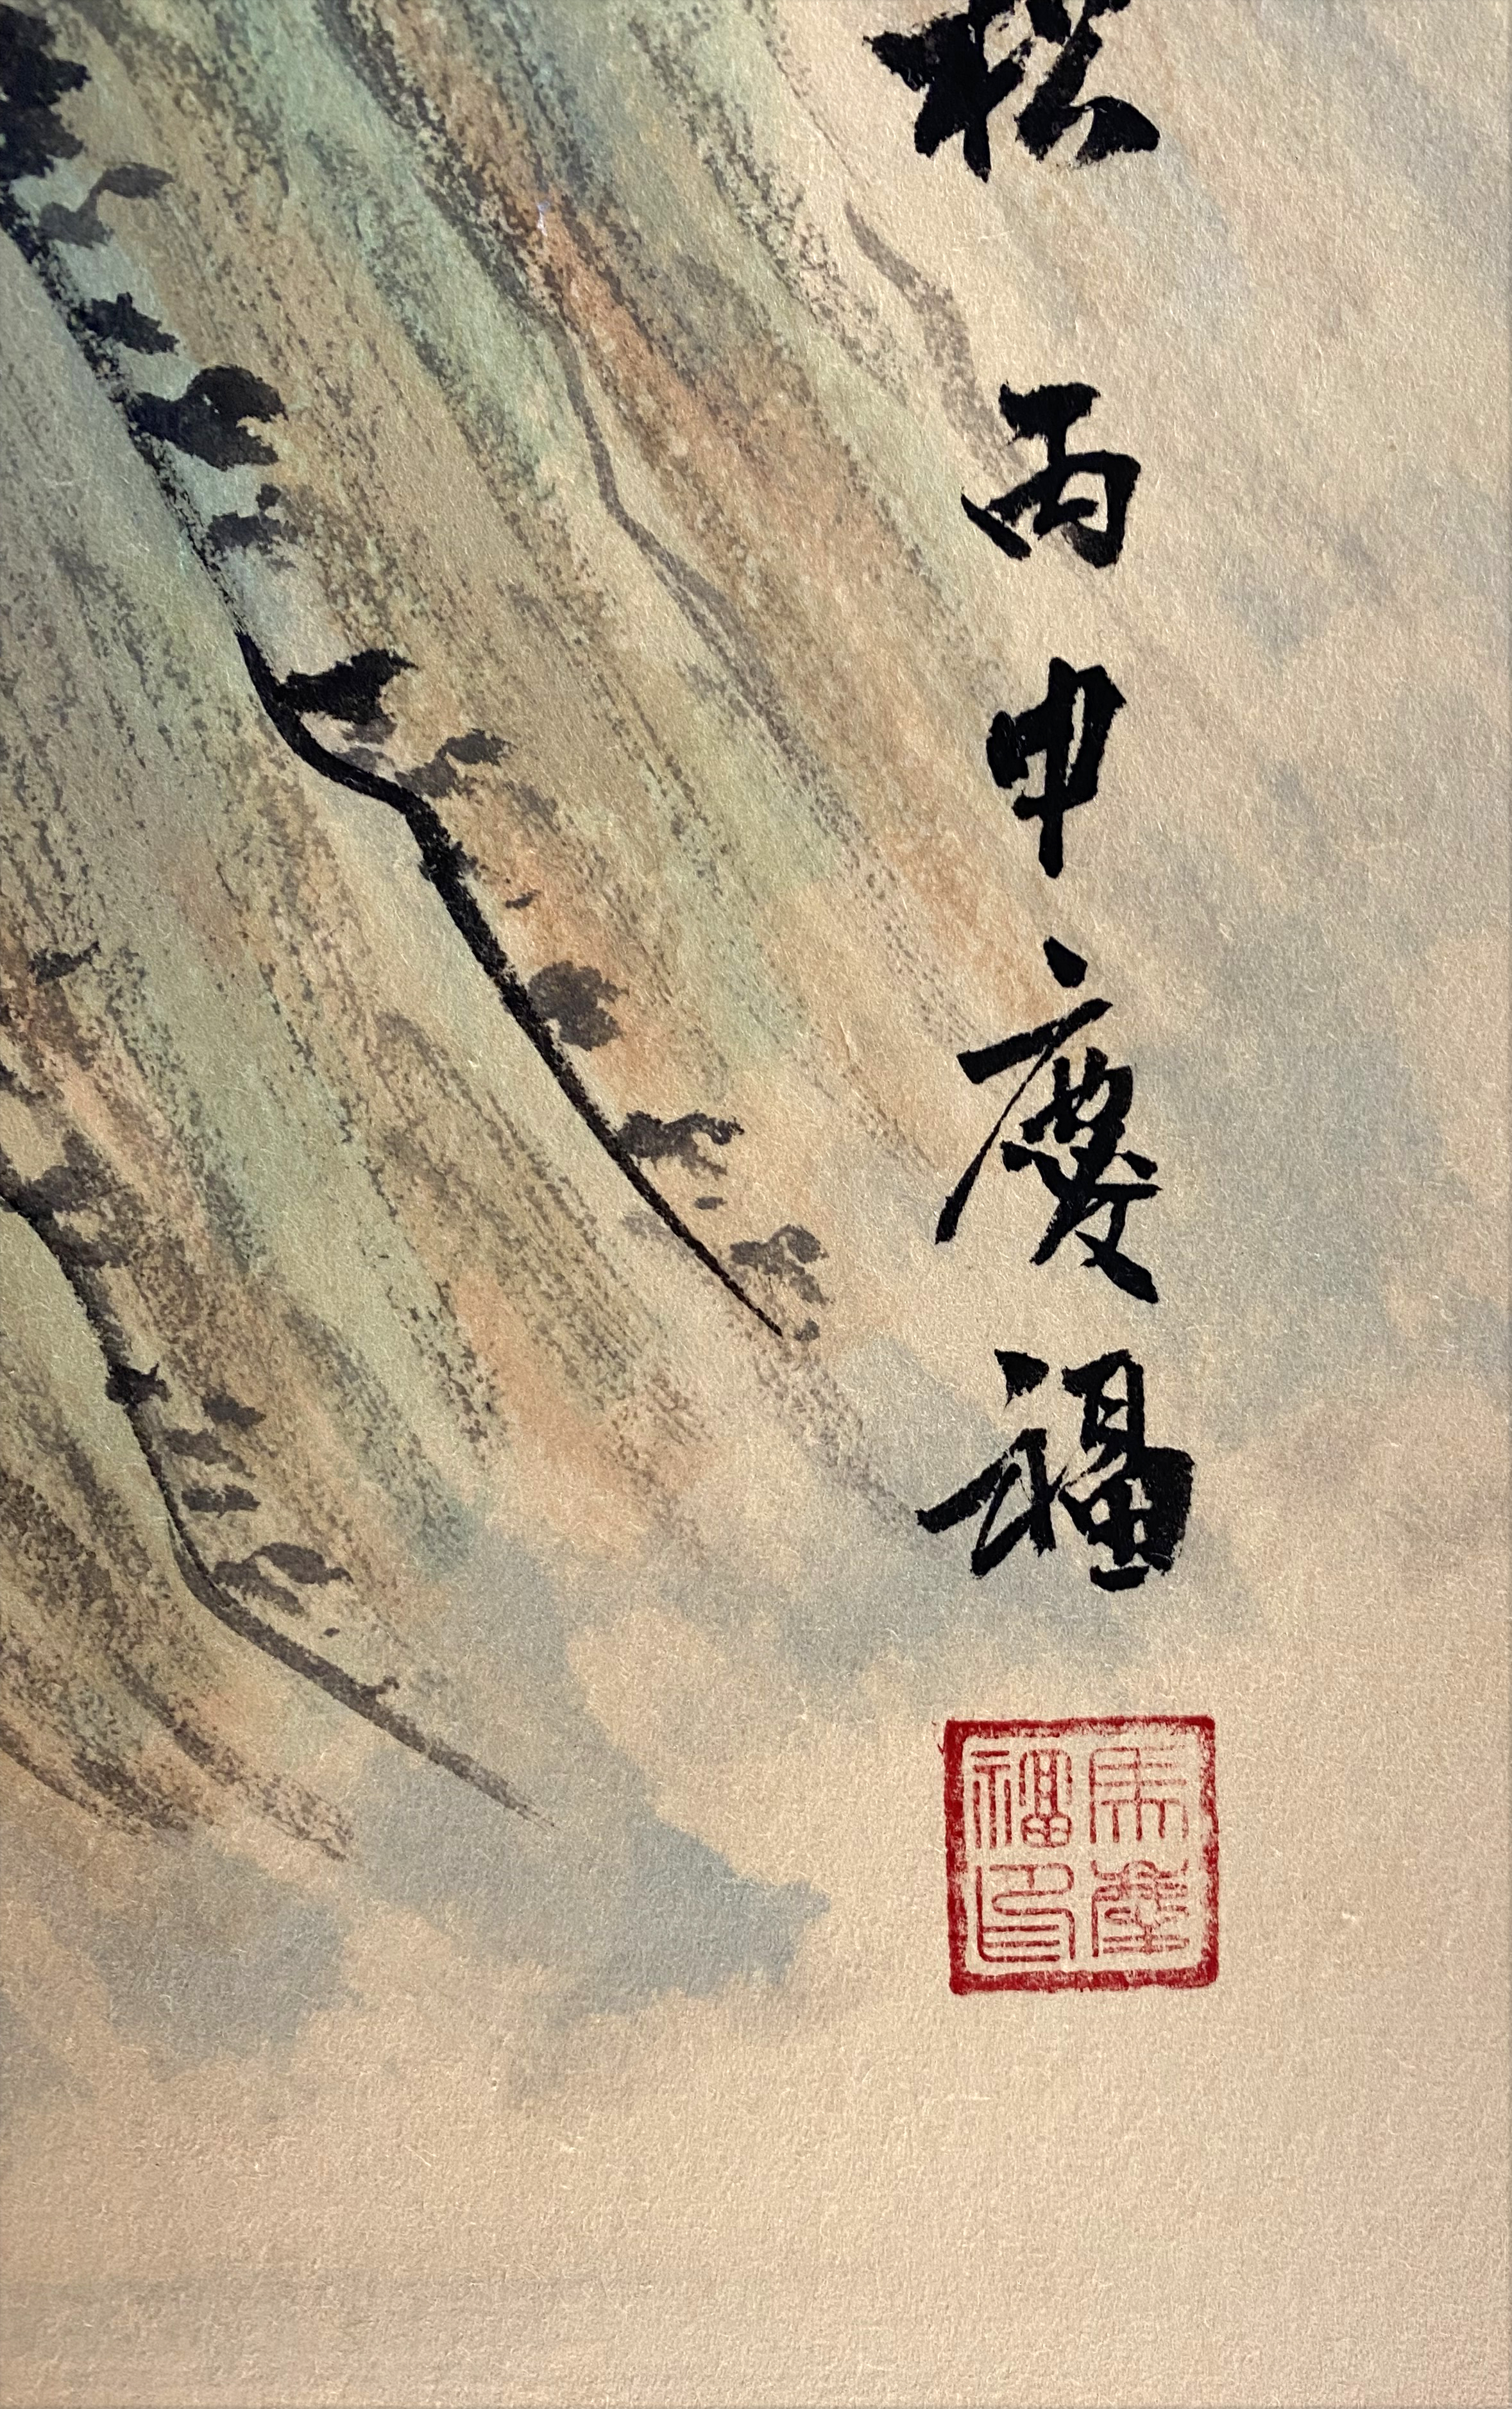 松 丙申慶福
慶
福印